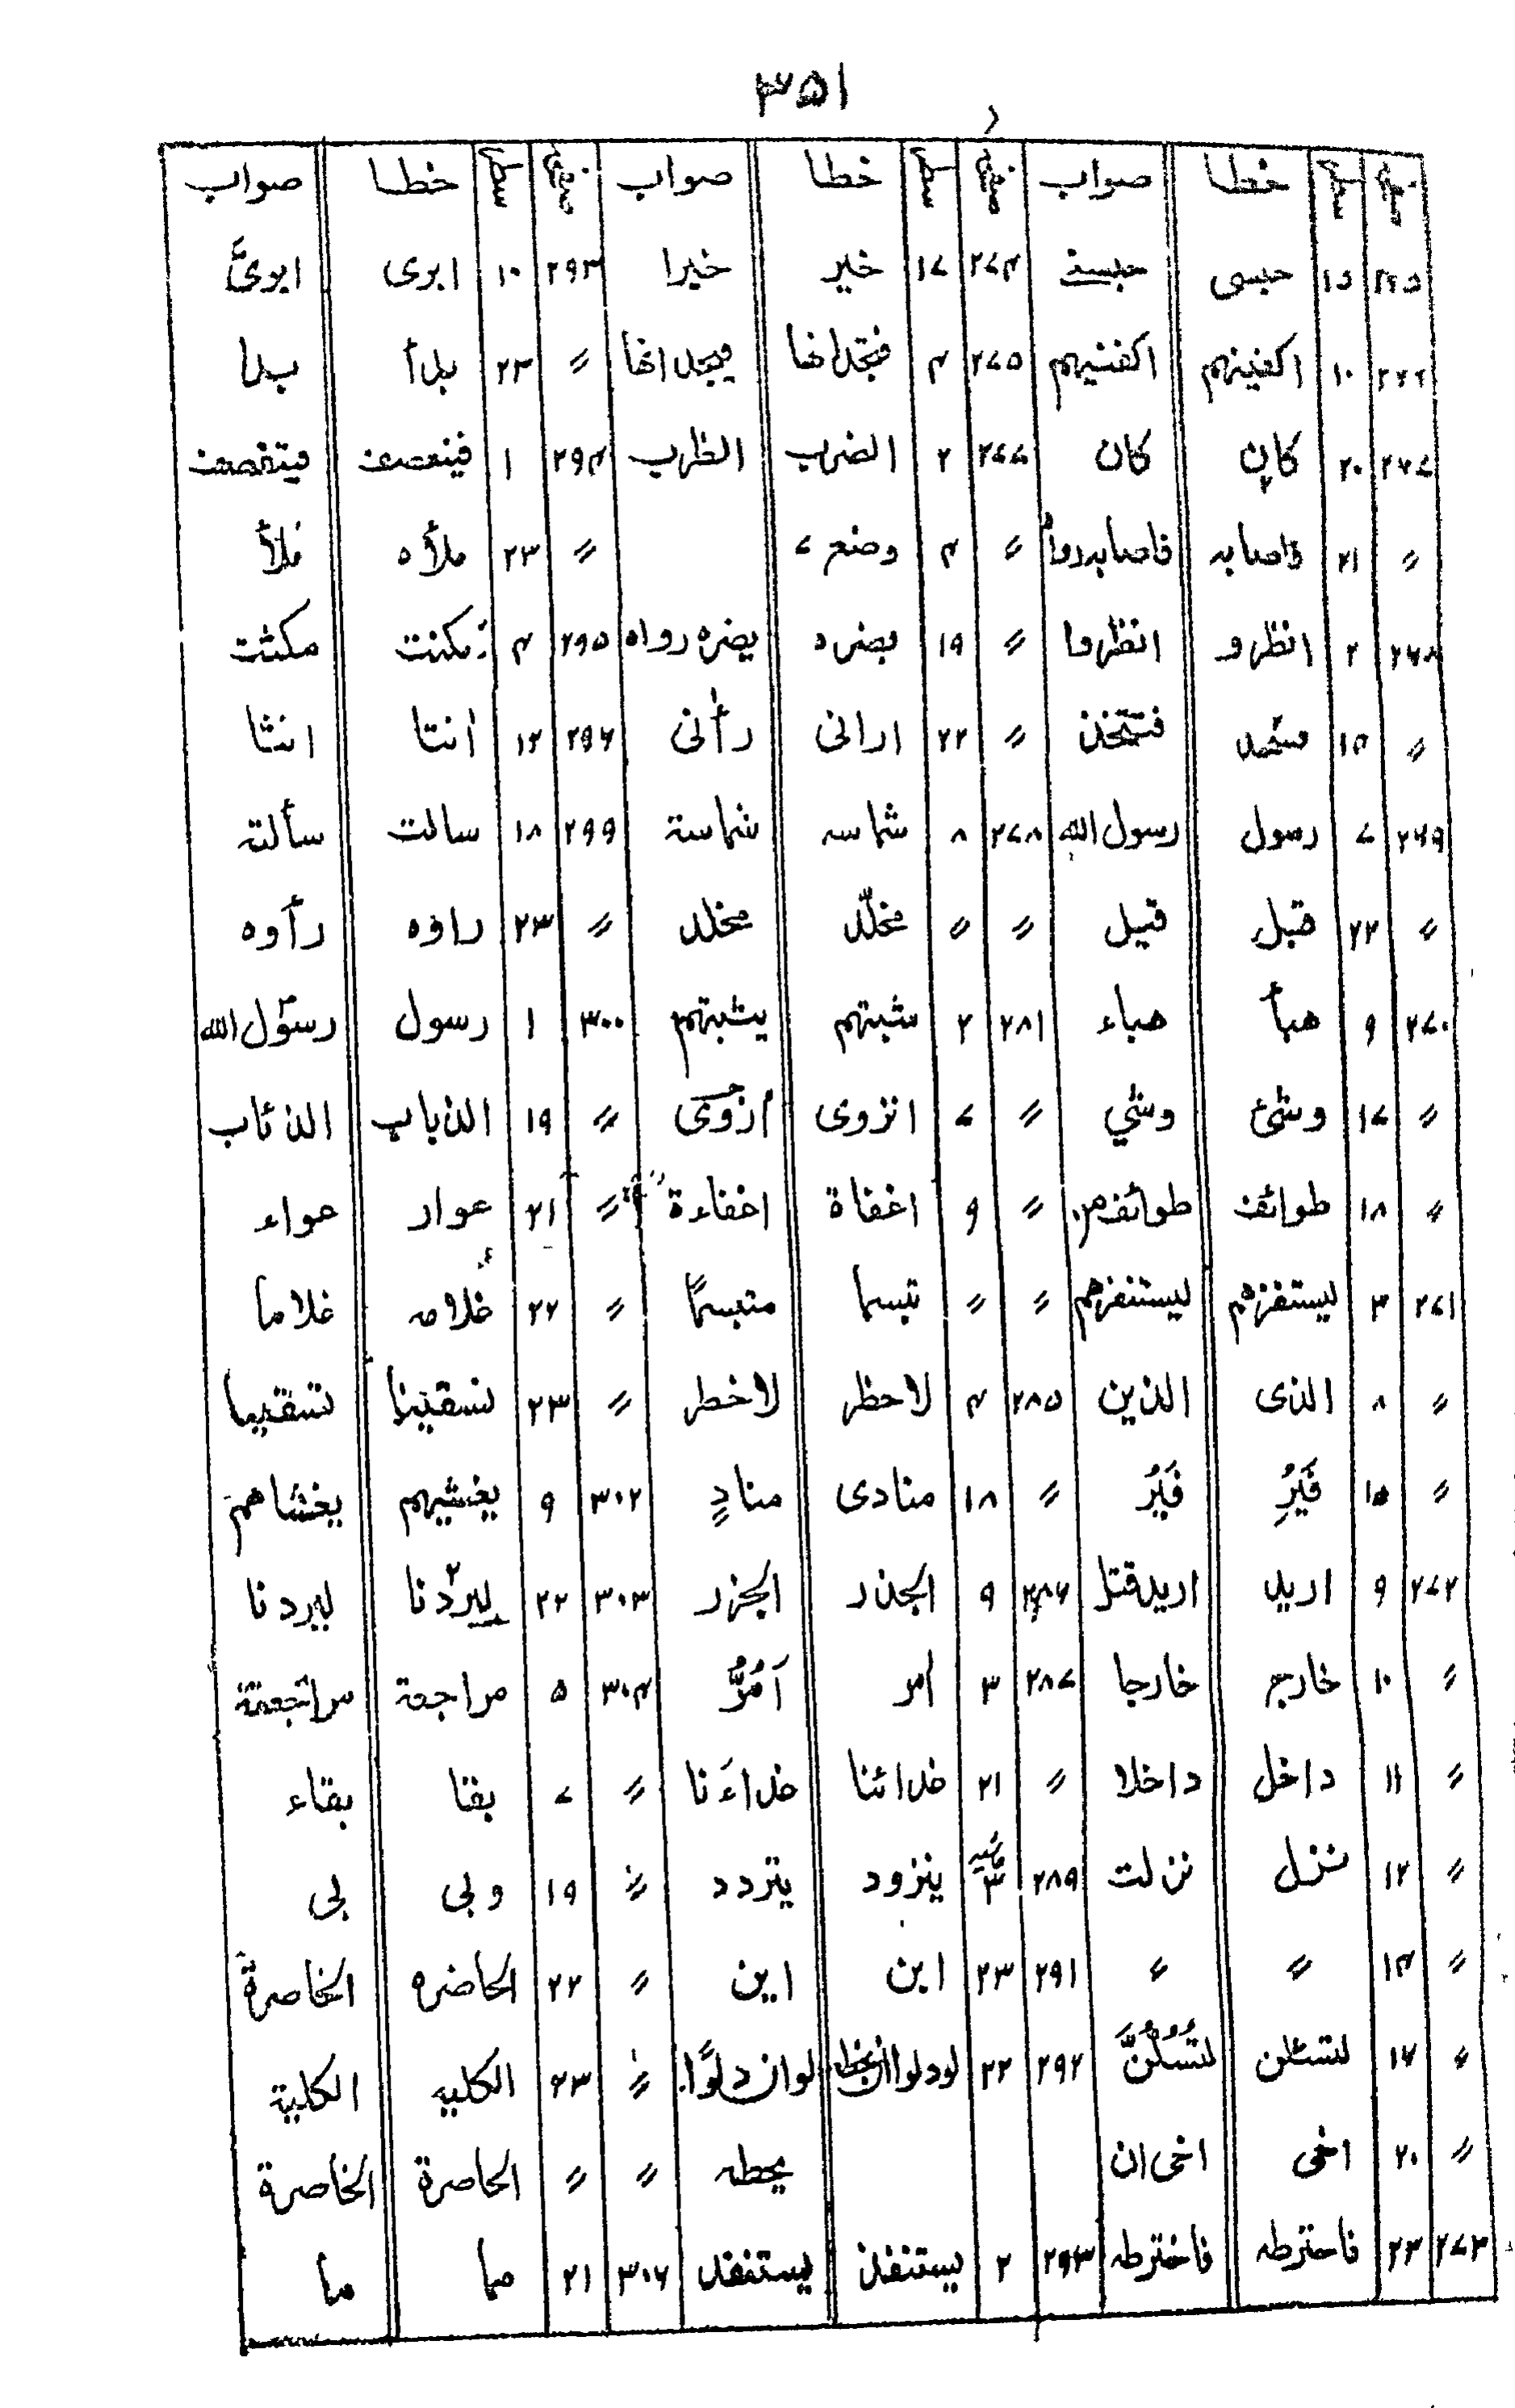 ۳۵۱
صفحہ سطر خطا صواب صفحہ سطر خطا صواب صفحہ سطر خطا صواب
۲۶۵ ۱۵ حبسی ۲۷۴ ۱۷ خیر خیرا ۲۹۳ ۱۰ ابری ابریَّ
۲۶۶ ۱۰ اکفنیهم ۲۷۵ ۴ فتجدانها فیجدانها 〃 ۲۳ بدأ بدا
۲۶۷ ۲۰ کان ۲۷۷ ۲ الضرب الظرب ۲۹۴ ۱ فینعصف فیتقصف
〃 ۲۱ فاصابه 〃 ۴ وضع ۷ 〃 ۲۳ ملأه مُلأ
۲۶۸ ۲ انظرو انظروا 〃 ۱۹ یضره رواه ۲۹۵ ۴ مکنت مکثت
〃 ۱۵ فتتخذ 〃 ۲۲ ارانی رأنی ۲۹۶ ۱۲ انتا انثا
۲۶۹ ۷ رسول رسول الله ۲۷۸ ۸ شماسه شماسة ۲۹۹ ۱۸ سالت سألته
〃 ۲۲ قبل قیل 〃 〃 مخلّد مخلد 〃 ۲۳ راوه رأوه
۲۷۰ ۹ هبأ هباء ۲۸۱ ۲ مثبتهم یثبتهم ۳۰۰ ۱ رسول رسول الله
〃 ۱۷ وشئ وشي 〃 ۷ انزوی 〃 ۱۹ الذباب الذئاب
〃 ۱۸ طوائف طوائف من 〃 ۹ اغفاة اغفاءة 〃 ۲۱ عوار عواء
۲۷۱ ۳ لیستفزهم لیستنفرهم 〃 〃 تبسما متبسمًا 〃 ۲۲ غلامه غلاما
〃 ۸ الذی الذین ۲۸۵ ۴ لاحظر لاخطر 〃 ۲۳ نسقینا
〃 ۱۵ 〃 ۱۸ منادی منادٍ ۳۰۲ ۹ یغشیهم یغشاهم
۲۷۲ ۹ ارید ارید قتل ۲۸۶ ۹ الجذر الجزر ۳۰۳ ۲۲ لیردنا
〃 ۱۰ خارج خارجا ۲۸۷ ۳ امر اَمُرُّ ۳۰۴ ۵ مراجعة
〃 ۱۱ داخل داخلا 〃 ۲۱ 〃 ۷ بقا بقاء
〃 ۱۲ نزل نزلت ۲۸۹ ۳ یتزود یتردد 〃 ۱۹ وبی بی
〃 ۱۴ 〃 〃 ۲۹۱ ۲۳ ابن این 〃 ۲۲ الحاضره الخاصرة
〃 ۱۷ لتسئلن لتُسْئَلُنَّ ۲۹۲ ۲۲ لوان دلوًا 〃 ۲۳ الکلیه الکلیة
〃 ۲۰ اخی اخی ان 〃 〃 الحاصرة الخاصرة
۲۷۳ ۲۳ فاحترطه فاخترطه ۲۹۳ ۲ یستنفذ یستنقذ ۳۰۶ ۲۱ ما